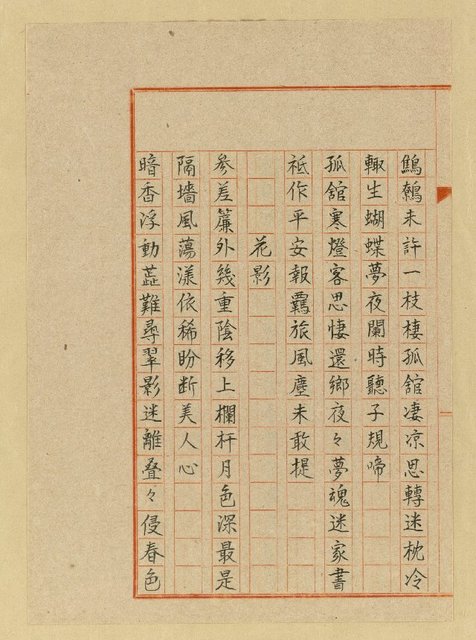 鷦鷯未許一枝棲孤舘凄凉思轉迷枕冷
輙生蝴蝶夢夜闌時聽子規啼
孤舘寒燈客思悽還鄉夜々夢魂迷家書
祗作平安報羁旅風塵未敢提
花影
參差簾外幾重陰移上欄杆月色深最是
隔墻風蕩漾依稀盼断美人心
暗香浮動蕋難尋翠影迷離叠々侵春色